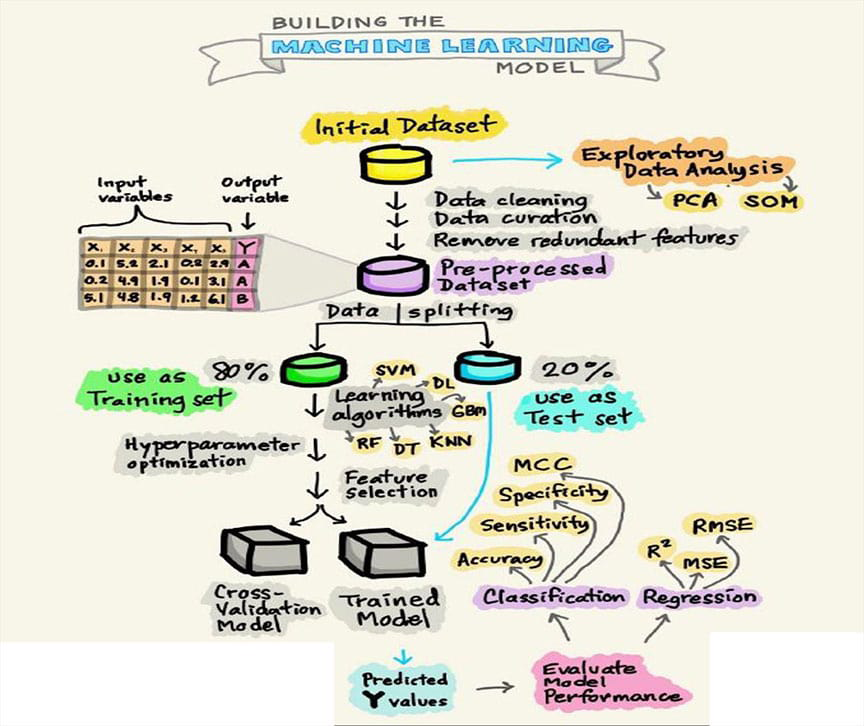 BUILDING THE
MACHINE LEARNING
MODEL
Initial Dataset
Exploratory
Data Analysis
PCA SOM
Input
variables
Output
variable
Data cleaning
Data curation
Remove redundant features
X. X. X. X. X. Y
0.1 5.2 2.1 0.2 2.9 A
0.2 4.9 1.9 0.1 3.1 A
5.1 4.8 1.9 1.2 6.1 B
Pre-processed
Dataset
Data splitting
80%
20%
use as
Training set
use as
Test set
Learning
algorithms
SVM
DL
GBm
KNN
DT
RF
Hyperparameter
optimization
Feature
selection
MCC
Specificity
Sensitivity
Accuracy
RMSE
R²
MSE
Cross-
Validation
Model
Trained
Model
Classification
Regression
Predicted
Y values
Evaluate
Model
Performance